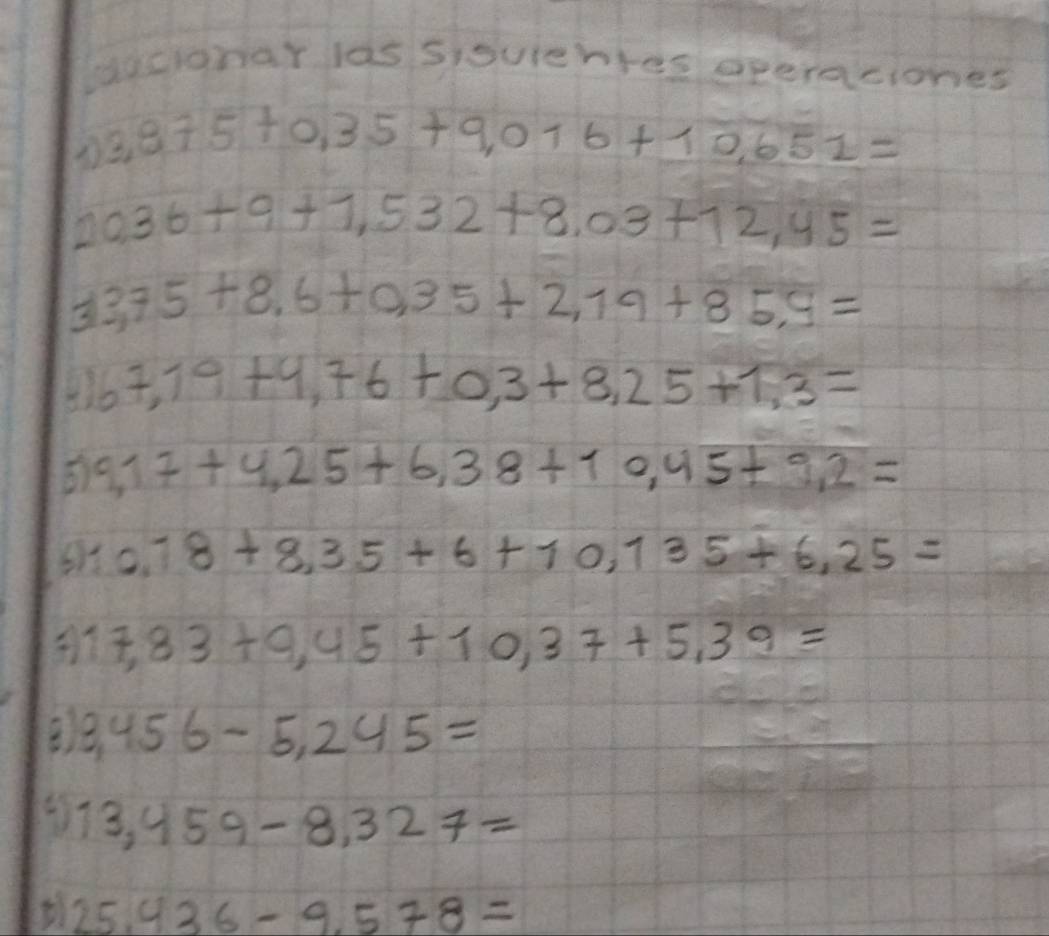 las siguientes operaciones
1) 3,875 + 0,35 + 9,016 + 10,651 =
2) 0,36 + 9 + 1,532 + 8,03 + 12,45 =
3) 3,75 + 8,6 + 0,35 + 2,19 + 85,9 =
4) 67,19 + 4,76 + 0,3 + 8,25 + 1,3 =
5) 9,17 + 4,25 + 6,38 + 10,45 + 9,2 =
6) 10,18 + 8,35 + 6 + 10,135 + 6,25 =
7) 17,83 + 9,45 + 10,37 + 5,39 =
8) 8,456 - 5,245 =
9) 13,459 - 8,327 =
25,436 - 9,578 =